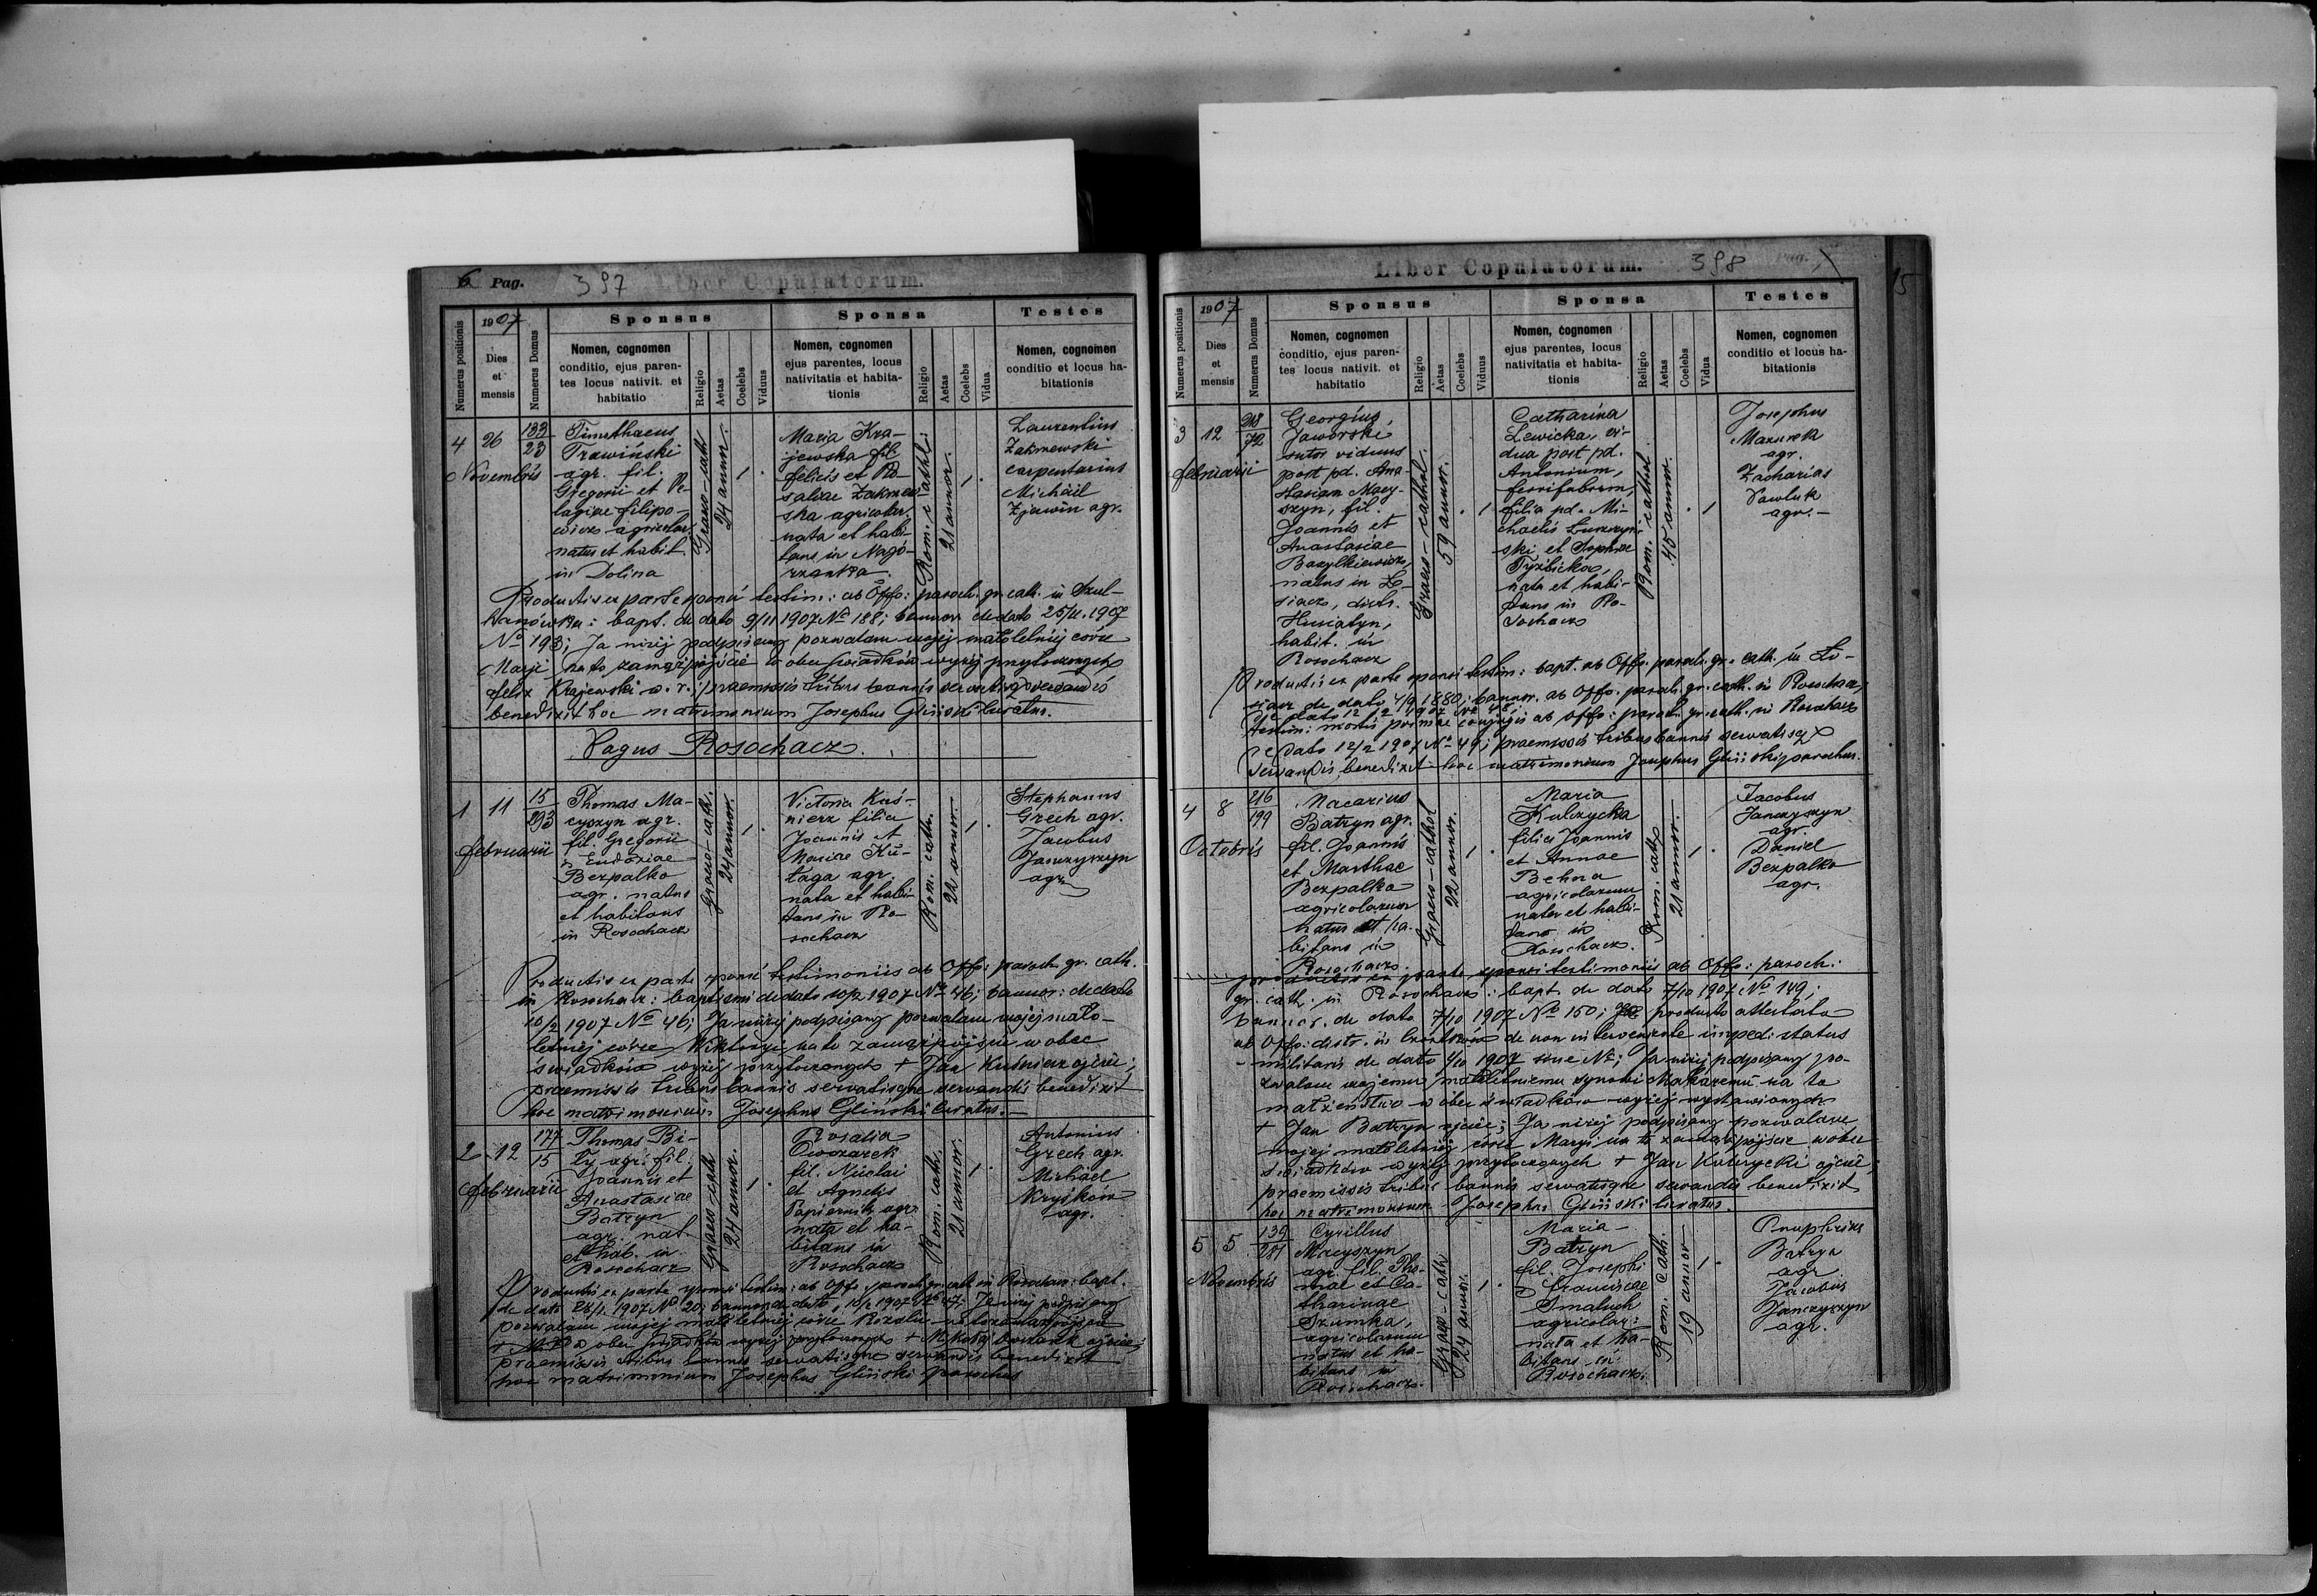 6 Pag. 397 Liber Copulatorum.
Numerus positionis
1907
Dies
et
mensis
Numerus Domus
Sponsus
Nomen, cognomen
conditio, ejus paren-
tes locus nativit. et
habitatio
Religio
Aetas
Coelebs
Viduus
Sponsa
Nomen, cognomen
ejus parentes, locus
nativitatis et habita-
tionis
Religio
Aetas
Coelebs
Vidua
Testes
Nomen, cognomen
conditio et locus ha-
bitationis
4 26
Novembris
133
23
Timothaeus
Trawinski
agr. fil.
Gregorii et Pe-
lagiae Filipo-
wicz agricolar.
natus et habit.
in Dolina
Graeco-cath
24 annor.
1.
Maria Kra-
jewska fil
Felicis et Ro-
saliae Zakrzew
ska agricolar.
nata et habi-
tans in Nagó-
rzanka
Rom. cathl:
21 annor.
1.
Laurentius
Zakrzewski
carpentarius
Michäil
Zjawin agr.
Productis ex parte sponsi testim: ab Offo: paroch. gr. cath. in Szul-
hanówka: bapt. de dato 9/11 1907 No 188; bannor. de dato 25/11. 1907
No 193; Ja niżej podpisany pozwalam mojej małoletniej córce
Marji na to zamążpójście w obec świadków wyżej przytoczonych
Felix Krajewski w. r.; praemissis tribus bannis servatisq servandis
benedixit hoc matrimonium Josephus Gliński curatus.
Pagus Rosochacz.
1 11
Februarii
15
293
Thomas Ma-
cyszyn agr.
fil. Gregorii
& Eudoxiae
Bezpalko
agr. natus
et habitans
in Rosochacz
Graeco-cath.
24 annor.
1.
Victoria Kuś-
nierz filia
Joannis et
Mariae Ku-
taga agr.
nata et habi-
tans in Ro-
sochacz
Rom. cath.
22 annor.
1.
Stephanus
Grech agr.
Jacobus
Janczyszyn
agr.
Productis ex parte sponsi testimoniis ab Offo: paroch. gr. cath.
in Rosochacz: baptismi de dato 10/2 1907 No 46; bannor: de dato
10/2 1907 No 46; Ja niżej podpisany pozwalam mojej mało-
letniej córce Wiktoryi na to zamążpójście w obec
świadków wyżej przytoczonych + Jan Kuśnierz ojciec;
praemissis tribus bannis servatisque servandis benedixit
hoc matrimonium Josephus Gliński curatus.
2 12
Februarii
177
15
Thomas Bi-
ły agr. fil.
Joannis et
Anastasiae
Batryn
agr. nat.
et hab. in
Rosochacz
Graeco-cath
24 annor.
1.
Rosalia
Owczarek
fil. Nicolai
et Agnetis
Papiernik agr.
nata et ha-
bitans in
Rosochacz
Rom. cath.
21 annor.
1.
Antonius
Grech agr.
Michäel
Kryśków
agr.
Productis ex parte sponsi testim: ab Offo: paroch. gr. cath. in Rosochacz: bapt.
de dato 28/1. 1907 No 20; bannor de dato 10/2 1907 No 47; Ja niżej podpisany
pozwalam mojej małoletniej córce Rozalii na to zamążpójście
w obec świadków wyżej przytoczonych + Mikołaj Owczarek ojciec;
praemissis tribus bannis servatisque servandis benedixit
hoc matrimonium Josephus Gliński parochus
Liber Copulatorum. 398 Pag. 15
Numerus positionis
1907
Dies
et
mensis
Numerus Domus
Sponsus
Nomen, cognomen
conditio, ejus paren-
tes locus nativit. et
habitatio
Religio
Aetas
Coelebs
Viduus
Sponsa
Nomen, cognomen
ejus parentes, locus
nativitatis et habita-
tionis
Religio
Aetas
Coelebs
Vidua
Testes
Nomen, cognomen
conditio et locus ha-
bitationis
3 12
Februarii
218
72
Georgius,
Jaworski
sutor viduus
post pd. Ana-
stasiam Macy-
szyn, fil.
Joannis et
Anastasiae
Bazylkiewicz,
natus in Lo-
siacz, distr.
Husiatyn,
habit. in
Rosochacz
Graeco-cathol.
59 annor.
. 1
Catharina
Lewicka, vi-
dua post pd.
Antonium,
ferrifabrum,
filia pd. Mi-
chaelis Luczyń-
ski et Sophiae
Tyzbickae,
nata et habi-
tans in Ro-
sochacz
Rom. cathol.
45 annor.
. 1
Josephus
Mazurek
agr.
Zacharias
Pawluk
agr. -
Productis ex parte sponsi testim: bapt. ab Offo. paroch. gr. cath. in Lo-
siacz de dato 4/9 1880; bannor. ab Offo. paroch. gr. cath. in Rosochacz
de dato 12/2 1907 No 48;
testim: mortis primae conjugis ab Offo: paroch. gr. cath. in Rosochacz
de dato 12/2 1907 No 49; praemissis tribus bannis servatisq
servandis benedixit hoc matrimonium Josephus Gliński parochus.
4 8
Octobris
216
199
Macarius
Batryn agr.
fil. Joannis
et Marthae
Bezpalko
agricolarum
natus et ha-
bitans in
Rosochacz.
Graeco-cathol
22 annor.
1.
Maria
Kulczycka
filia Joannis
et Annae
Behna
agricolarum
nata et habi-
tans in
Rosochacz.
Rom. cath
21 annor.
1.
Jacobus
Janczyszyn
agr.
Daniel
Bezpalko
agr.
productis ex parte sponsi testimoniis ab Offo: paroch:
gr. cath. in Rosochacz: bapt. de dato 7/10 1907 No 149;
bannor. de dato 7/10 1907 No 150; producto attestato
ab Offo: distr. in Czortków de non interveniente imped: status
militaris de dato 4/10 1907 sine No; Ja niżej podpisany po-
zwalam mojemu małoletniemu synowi Makaremu na to
małżeństwo w obec świadków wyżej wystawionych
+ Jan Batryn ojciec; Ja niżej podpisany pozwalam
mojej małoletniej córce Maryi na to zamążpójście w obec
świadków wyżej przytoczonych + Jan Kulczycki ojciec,
praemissis tribus bannis servatisque servandis benedixit
hoc matrimonium Josephus Gliński curatus.
5 5
Novembris
139
281
Cyrillus
Macyszyn
agr. fil. Tho-
mae et Ca-
tharinae
Szumka,
agricolarum
natus et ha-
bitans in
Rosochacz.
Graeco-cath
24 annor.
1.
Maria
Batryn
fil. Josephi
& Franciscae
Smaluch
agricolar:
nata et ha-
bitans in
Rosochacz.
Rom. Cath.
19 annor
1.
Onuphrius
Batryn
agr.
Jacobus
Janczyszyn
agr.